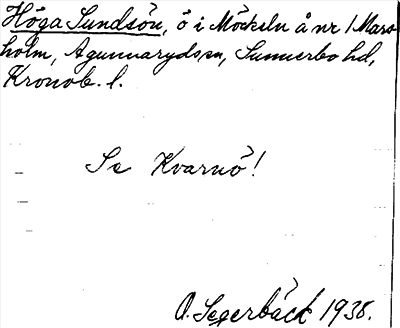 Höga Sundsön, ö i Möckeln å nr 1 Mars-
holm, Agunnaryds sn, Sunnerbo hd,
Kronob. l.
Se Kvarnö!
O. Segerbäck 1938.